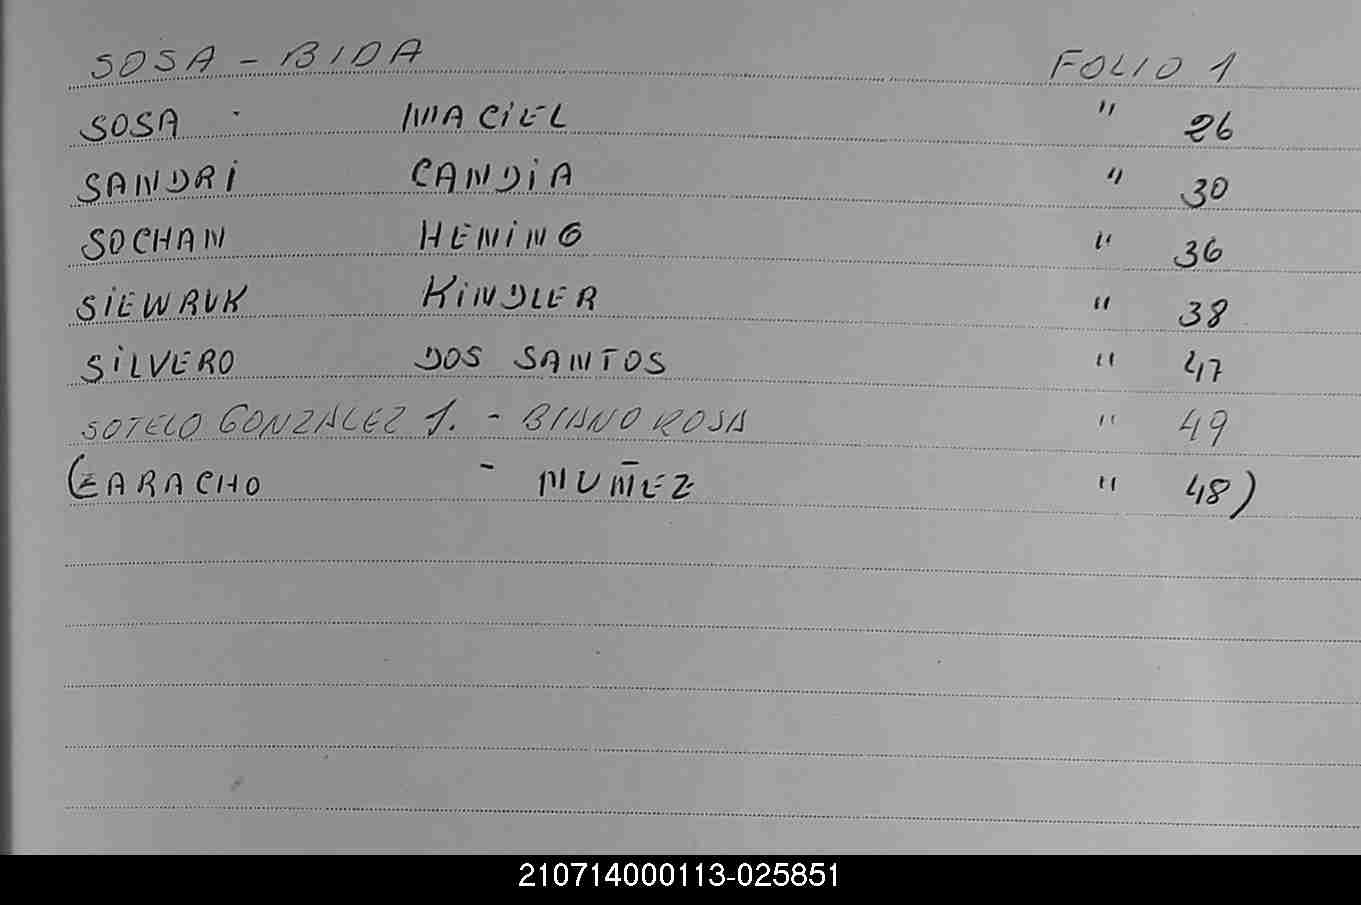 SOSA - BIDA FOLIO 1
SOSA - MACIEL " 26
SANDRI CANDIA " 30
SOCHAN HENING " 36
SIEWRUK KINDLER " 38
SILVERO DOS SANTOS " 47
SOTELO GONZALEZ J. - BIANO ROSA " 49
(ZARACHO - MUÑEZ " 48)
210714000113-025851